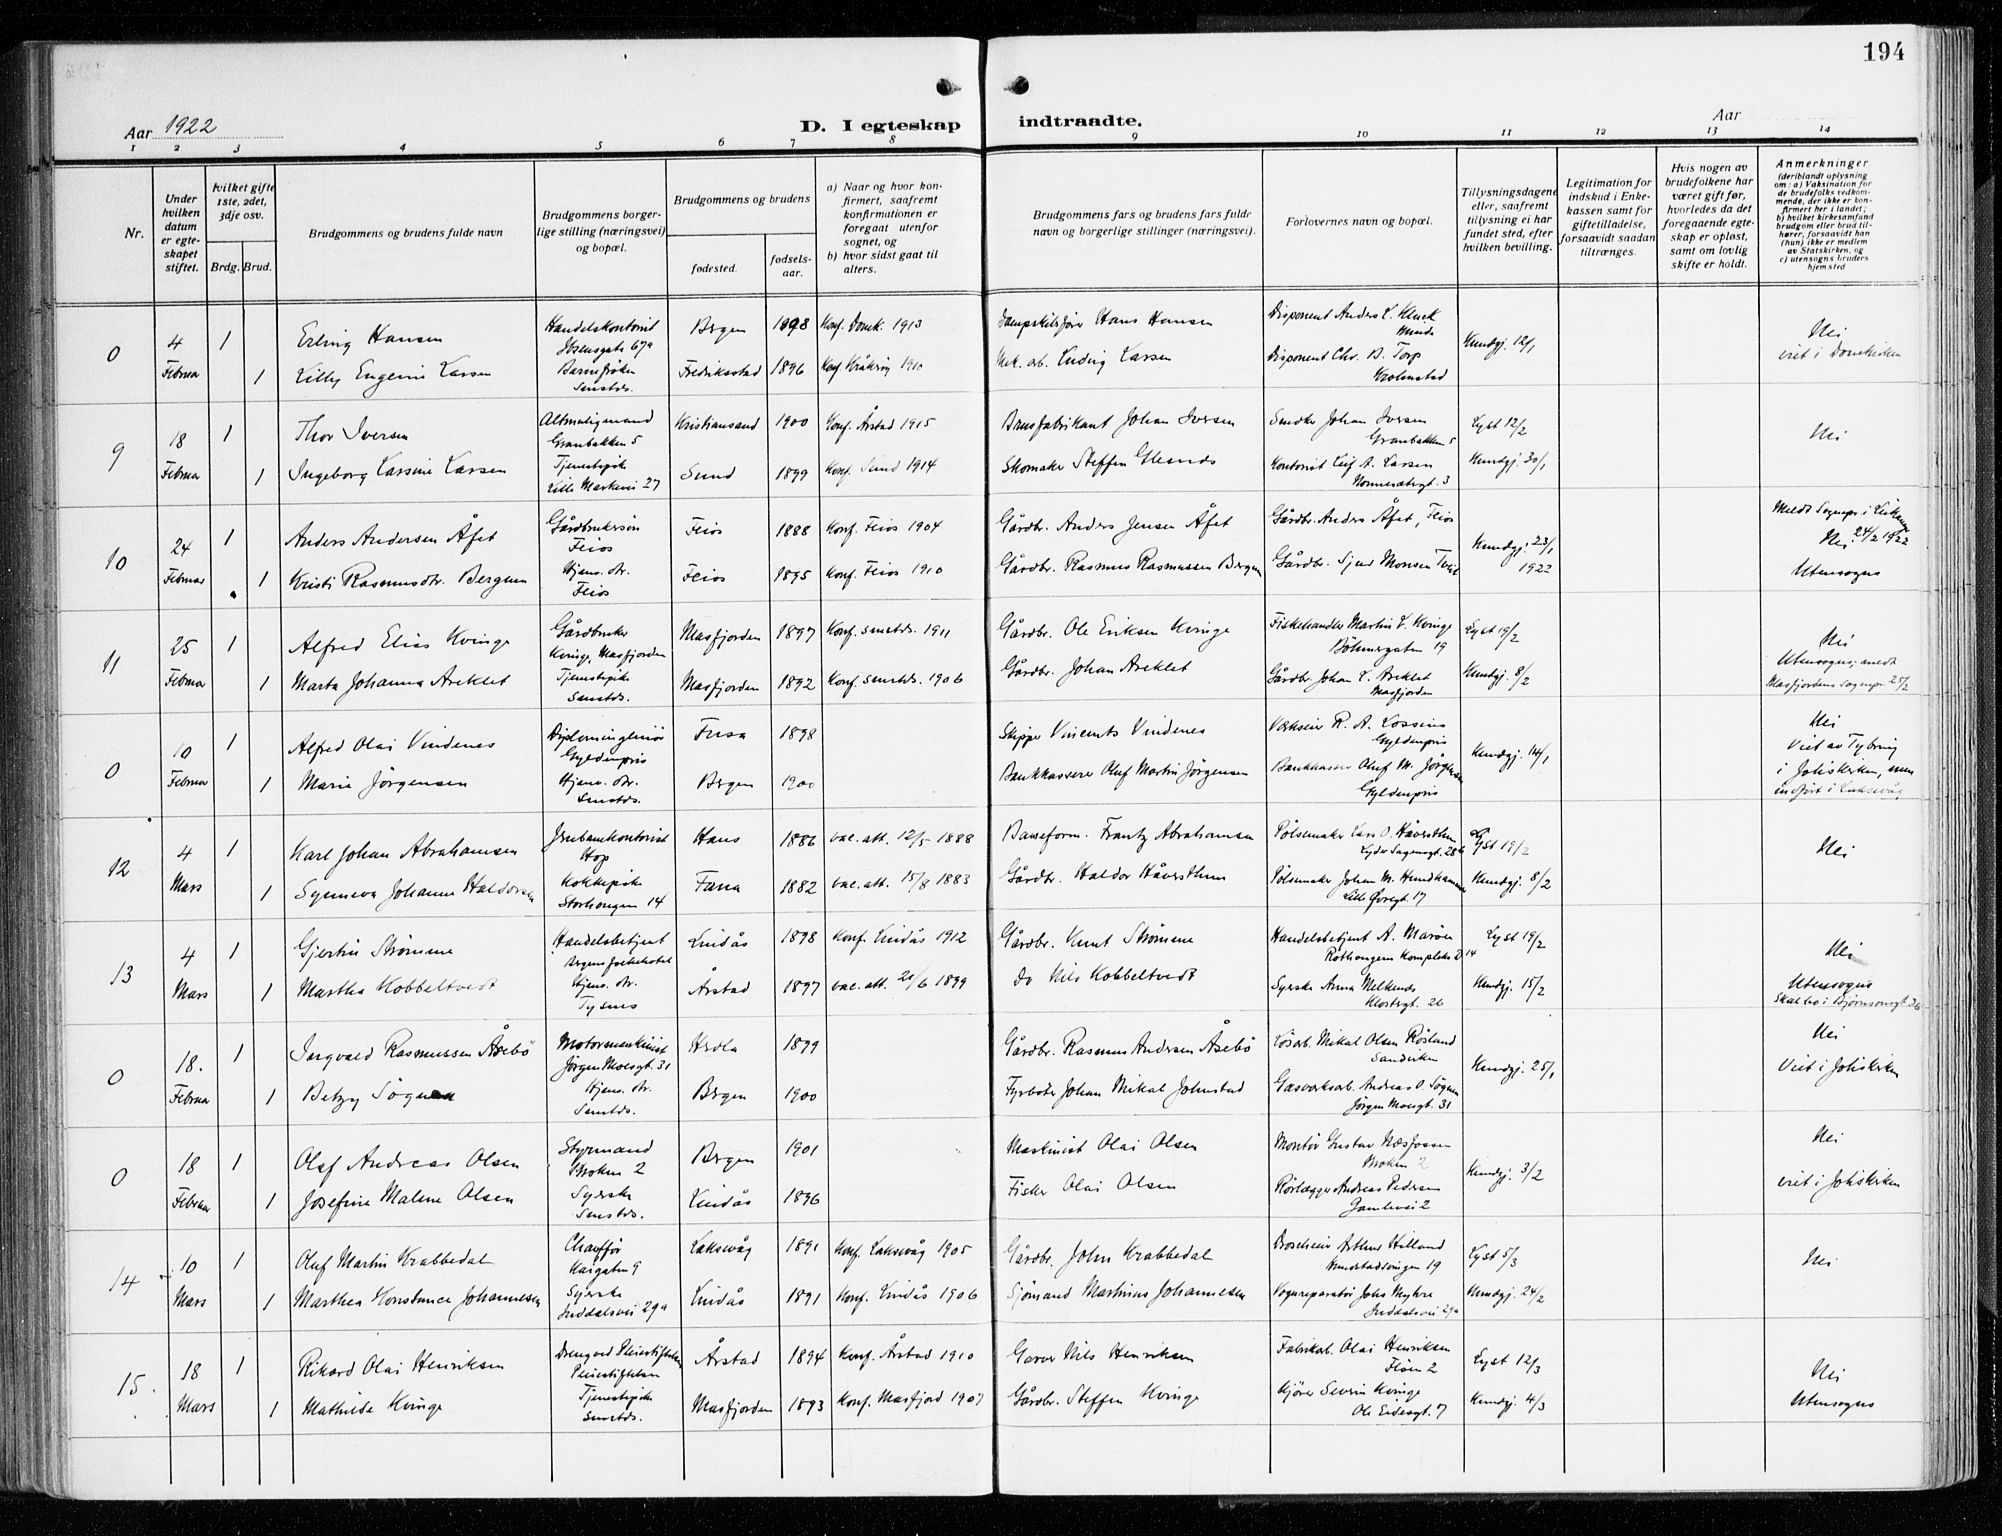 194
Aar 1922
D. I egteskap indtraadte.
Aar
1 2 3 4 5 6 7 8 9 10 11 12 13 14
Nr.
Under hvilken datum er egteskapet stiftet.
hvilket gifte 1ste, 2det, 3dje osv.
Brdg. Brud.
Brudgommens og brudens fulde navn
Brudgommens borgerlige stilling (næringsvei) og bopæl.
Brudgommens og brudens
fødested.
fødselsaar.
a) Naar og hvor konfirmert, saafremt konfirmationen er foregaat utenfor sognet, og
b) hvor sidst gaat til alters.
Brudgommens fars og brudens fars fulde navn og borgerlige stillinger (næringsvei).
Forlovernes navn og bopæl.
Tillysningsdagene eller, saafremt tillysning ei har fundet sted, efter hvilken bevilling.
Legitimation for indskud i Enkekassen samt for giftetilladelse, forsaavidt saadan tiltrænges.
Hvis nogen av brudefolkene har været gift før, hvorledes da det foregaaende egteskap er opløst, samt om lovlig skifte er holdt.
Anmerkninger (deriblandt oplysning om: a) Vaksination for de brudefolks vedkommende, der ikke er konfirmert her i landet; b) hvilket kirkesamfund brudgom eller brud tilhører, forsaavidt han (hun) ikke er medlem av Statskirken, og c) utensogns bruders hjemsted
0 4 Februar 1 Erling Hansen Handelskontorist Ibsensgate 67a Bergen 1898 Konf. Domk. 1913 Dampskibsfører Hans Hansen Disponent Anders L. Minde Kundgj. 12/1 Nei
1 Lilly Eugenie Larsen Barnefrøken Samstds. Fredriksstad 1896 Konf. Kråkerøy 1910 Mek. arb. Ludvig Larsen Disponent Chr. B. Torp viet i Domkirken
9 18 Februar 1 Thor Iversen Altmuligmand Granbakken 5 Kristiansand 1900 Konf. Årstad 1915 Brusfabrikant Johan Iversen Snedker Johan Iversen Granbakken 5 Lyst 12/2 Nei
1 Ingeborg Larsine Larsen Tjenestepike Lille Markevei 27 Sund 1899 Konf. Sund 1914 Skomaker Steffen Kontorist Leif A. Larsen Nonnesætergt. 3 Kundgj. 30/1
10 24 Februar 1 Anders Andersen Åfet Gårdbrukersøn Feios Feios 1888 Konf. Feios 1904 Gårdbr. Anders Jensen Åfet Gårdbr. Anders Åfet, Feios Kundgj. 23/1 1922 Meldt Sognepr. i Leikanger 24/2 1922 Nei
1 Kristi Rasmusdtr. Bergum Hjemv. dtr. Feios Feios 1895 Konf. Feios 1910 Gårdbr. Rasmus Rasmussen Bergum Gårdbr. Sjur Monsen Tveit Utensogns
11 25 Februar 1 Alfred Elias Kvinge Gårdbruker Kvinge, Masfjorden Masfjorden 1897 Konf. samstds. 1911 Gårdbr. Ole Eriksen Kvinge Fiskehandler Martin L. Kvinge Böhmergaten 19 Lyst 19/2 Nei
1 Marta Johanna Areklet Tjenestepike Samstds. Masfjorden 1892 Konf. samstds. 1906 Gårdbr. Johan Areklet Gårdbr. Johan L. Areklet Masfjorden Kundgj. 8/2 Utensogns; meldt Masfjordens Sognepr. 25/2
0 10 Februar 1 Alfred Olai Vindenes Diplomingeniør Gyldenpris Fusa 1898 Skipper Vincents Vindenes Verkseier R. A. Gyldenpris Kundgj. 14/1 Nei
1 Marie Jörgensen Hjemv. dtr. Samstds. Bergen 1900 Bankkasserer Oluf Martin Jörgensen Bankkasser Oluf M. Jörgensen Gyldenpris Viet av Tybring i Johskirken, men indført i Laksevåg
12 4 Mars 1 Karl Johan Abrahamsen Jernbanekontorist Hop Haus 1886 vac. att. 12/5 1888 Baneform. Frantz Abrahamsen Pølsemaker Lars O. Håversthun Lyder Sagensgt. 28b Lyst 19/2 Nei
1 Synneva Johanne Haldorsen Kokkepike Storhaugen 14 Fana 1882 vac. att. 15/8 1883 Gårdbr. Haldor Håversthun Pølsemaker Johan M. Hundhammer Lille Øvregt. 17 Kundgj. 8/2
13 4 Mars 1 Gjertin Strømme Handelsbetjent Bergens folkehotel Lindås 1898 Konf. Lindås 1912 Gårdbr. Knut Strømme Handelsbetjent A. Marøen Rothaugen Kompleks 2 14 Lyst 19/2 Nei
1 Martha Kobbeltvedt Hjemv. dtr. Tysnes Årstad 1897 vac. att. 20/6 1899 Do Nils Kobbeltvedt Syerske Anna Klostergt. 26 Kundgj. 15/2 Utensogns Skal bo i Bjørnsonsgt. 26
0 18. Februar 1 Ingvald Rasmussen Åsebö Motormaskinist Jørgen Moesgt. 31 Herdla 1899 Gårdbr. Rasmus Andersen Åsebö Løsarb. Mikal Olsen Røsland Sandviken Kundgj. 25/1 Nei
1 Betzy Sögnen Hjemv. dtr. Samstds. Bergen 1900 Fyrbøter Johan Mikal Johnstad Gasverksarb. Andreas O. Sögnen Jørgen Moesgt. 31 Viet i Johskirken
0 18 Februar 1 Olaf Andreas Olsen Styrmand Moken 2 Bergen 1901 Maskinist Olai Olsen Montør Gustav Næsfossen Moken 2 Kundgj. 3/2 Nei
1 Josefine Malene Olsen Syerske Samstds. Lindås 1896 Fisker Olai Olsen Rørlægger Andreas Pedersen Gamlevei 2 viet i Johskirken
14 10 Mars 1 Oluf Martin Krabbedal Chauffør Kaigaten 9 Laksevåg 1891 Konf. Laksevåg 1905 Gårdbr. John Krabbedal Droscheeier Arthur Hilland 19 Lyst 5/3 Nei
1 Marthea Konstance Johannesen Syerske Inddalsvei 29a Lindås 1891 Konf. Lindås 1906 Sjömand Martinus Johannesen Vognreparatør Johs Myhre Inddalsvei 29a Kundgj. 24/2
15 18 Mars 1 Rikard Olai Henriksen Dreng ved Pleiestiftelsen Pleiestiftelsen Årstad 1894 Konf. Årstad 1910 Garver Nils Henriksen Fabrikarb. Olai Henriksen Fløen 2 Lyst 12/3 Nei
1 Mathilde Kvinge Tjenestepike Samstds. Masfjorden 1893 Konf. Masfjord 1907 Gårdbr. Steffen Kvinge Kjører Severin Kvinge Ole Eidesgt. 7 Kundgj. 4/3 Utensogns